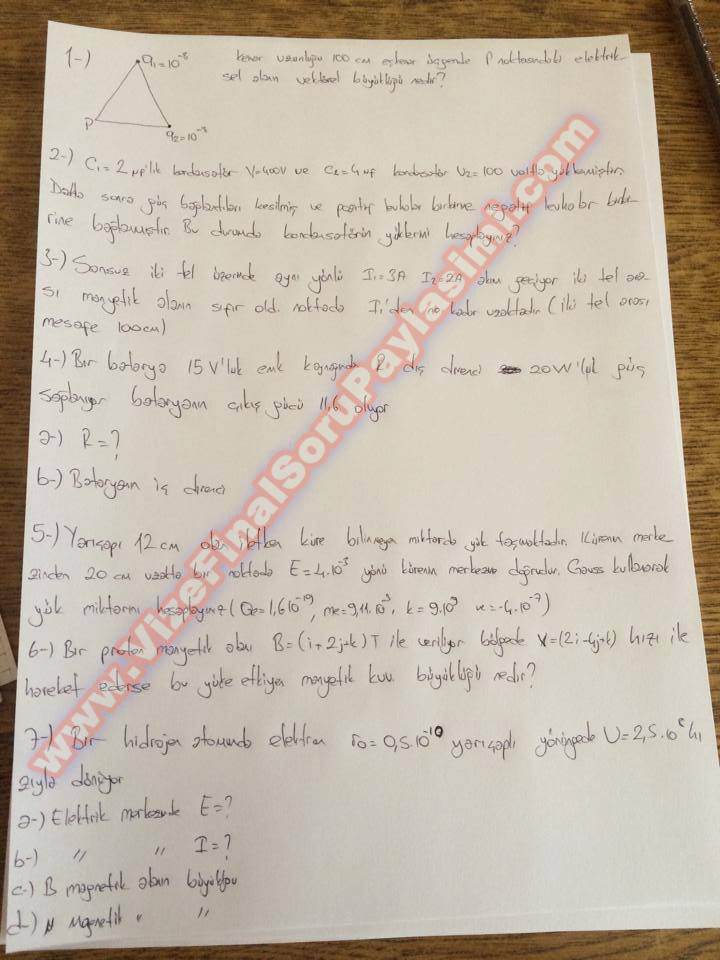 1-) q₁=10⁻⁸ kenar uzunluğu 100 cm eşkenar üçgende P noktasındaki elektrik-
sel alanın vektörel büyüklüğü nedir?
P
q₂=10⁻⁸
2-) C₁=2 μf'lik kondansatör V=400V ve C₂=4 μf kondansatör V₂=100 voltla yüklenmiştir.
Daha sonra güç bağlantıları kesilmiş ve pozitif levhalar birbirine negatif levhalar birbi-
rine bağlanmıştır. Bu durumda kondansatörün yüklerini hesaplayınız?
3-) Sonsuz iki tel üzerinde aynı yönlü I₁=3A I₂=2A akım geçiyor iki tel ara-
sı manyetik alanın sıfır old. noktada I₁'den ne kadar uzaktadır (iki tel arası
mesafe 100cm)
4-) Bir batarya 15 V'luk emk kaynağında R dış direnci 20W'lık güç
sağlanıyor bataryanın çıkış gücü 11,6 oluyor
a-) R=?
b-) Bataryanın iç direnci
5-) Yarıçapı 12 cm olan iletken küre bilinmeyen miktarda yük taşımaktadır. Kürenin merke
zinden 20 cm uzakta bir noktada E=4.10⁻³ yönü kürenin merkezine doğrudur. Gauss kullanarak
yük miktarını hesaplayınız (Qe=1,6.10⁻¹⁹, me=9,11.10⁻³, k=9.10⁹ =4.10⁻⁷)
6-) Bir proton manyetik alanı B=(i+2j+k)T ile veriliyor bölgede V=(2i-4j+k) hızı ile
hareket ederse bu yüke etkiyen manyetik kuv. büyüklüğü nedir?
7-) Bir hidrojen atomunda elektron r₀=0,5.10⁻¹⁰ yarıçaplı yörüngede U=2,5.10⁶ hı
zıyla dönüyor
a-) Elektrik merkezinde E=?
b-) " " I=?
c-) B magnetik alanın büyüklüğü
d-) μ Magnetik " "
www.VizeFinalSoruPaylasimi.com